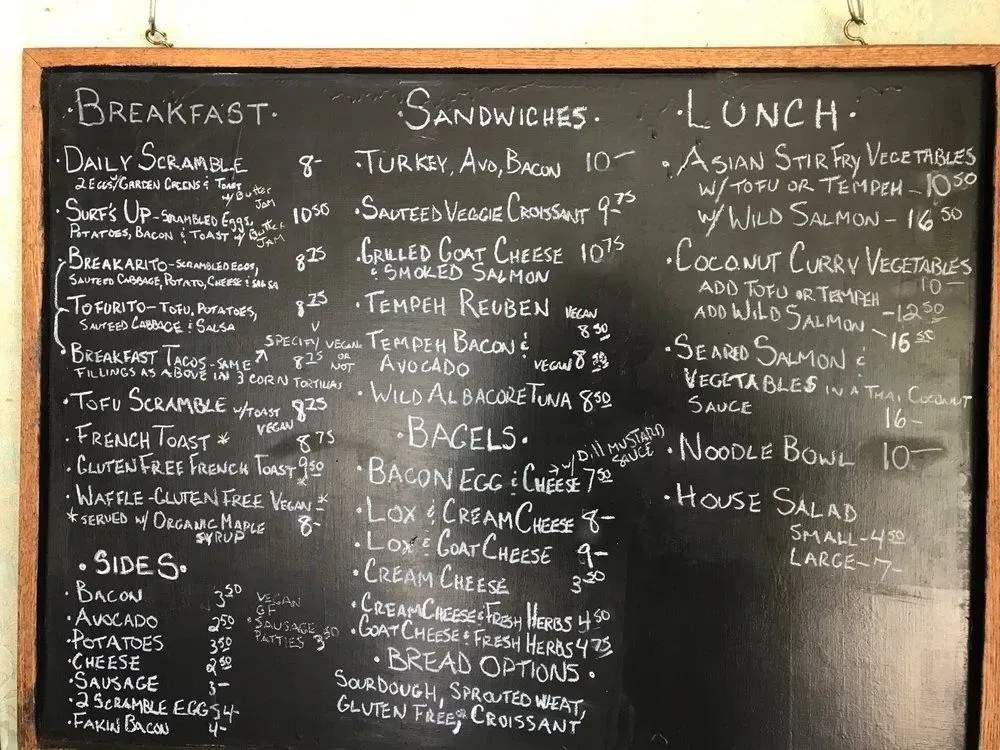 ·BREAKFAST·
·DAILY SCRAMBLE 8-
2 EGGS/GARDEN GREENS & TOAST
w/ Butter
JAM
·SURF'S UP-SCRAMBLED EGGS, 10 50
POTATOES, BACON & TOAST w/ Butter
JAM
·BREAKARITO-SCRAMBLED EGGS, 8 25
SAUTEED CABBAGE, POTATO, CHEESE & SALSA
·TOFURITO-TOFU, POTATOES, 8 25
SAUTEED CABBAGE & SALSA V
SPECIFY VEGAN
OR
NOT
·BREAKFAST TACOS-SAME 8 25
FILLINGS AS ABOVE IN 3 CORN TORTILLAS
·TOFU SCRAMBLE w/TOAST 8 25
VEGAN
·FRENCH TOAST * 8 75
·GLUTEN FREE FRENCH TOAST * 9 50
·WAFFLE-GLUTEN FREE VEGAN * 8-
*SERVED w/ ORGANIC MAPLE
SYRUP
·SIDES·
·BACON 3 50
·AVOCADO 2 50
·POTATOES 3 50
·CHEESE 2 50
·SAUSAGE 3-
·2 SCRAMBLE EGGS 4-
·FAKIN BACON 4-
VEGAN
GF
·SAUSAGE
PATTIES 3 50
SANDWICHES·
·TURKEY, AVO, BACON 10-
·SAUTEED VEGGIE CROISSANT 9 75
·GRILLED GOAT CHEESE 10 75
& SMOKED SALMON
·TEMPEH REUBEN VEGAN
8 50
·TEMPEH BACON &
AVOCADO VEGAN 8 50
·WILD ALBACORE TUNA 8 50
·BAGELS·
·BACON EGG & CHEESE 7 50
→ w/ Dill MUSTARD
SAUCE
·LOX & CREAM CHEESE 8-
·LOX & GOAT CHEESE 9-
·CREAM CHEESE 3 50
·CREAM CHEESE & FRESH HERBS 4 50
·GOAT CHEESE & FRESH HERBS 4 75
·BREAD OPTIONS·
SOURDOUGH, SPROUTED WHEAT,
GLUTEN FREE, or CROISSANT
·LUNCH·
·ASIAN STIR FRY VEGETABLES
w/ TOFU OR TEMPEH - 10 50
w/ WILD SALMON - 16 50
·COCONUT CURRY VEGETABLES
10-
ADD TOFU OR TEMPEH - 12 50
ADD WILD SALMON - 16 50
·SEARED SALMON &
VEGETABLES IN A THAI COCONUT
SAUCE 16-
·NOODLE BOWL 10-
·HOUSE SALAD
SMALL-4 50
LARGE-7-